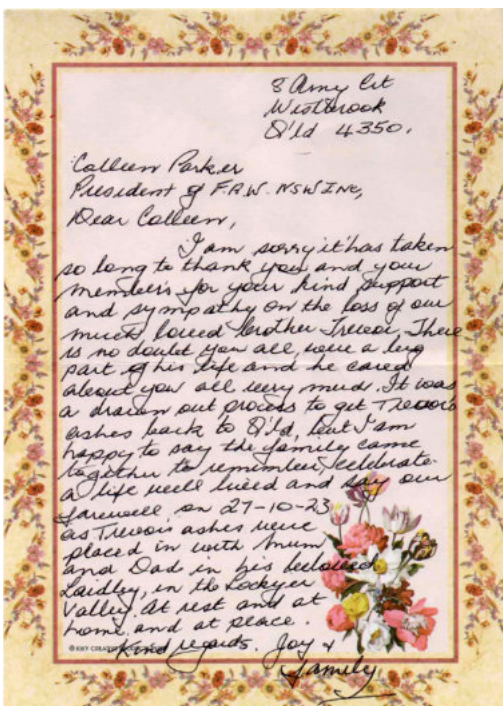 8 Amy Crt
Westbrook
Q'ld 4350.
Colleen Parker
President of F.A.W. NSW INC,
Dear Colleen,
I am sorry it has taken
so long to thank you and your
member's for your kind support
and sympathy on the loss of our
much loved brother Trevor. There
is no doubt you all, were a big
part of his life and he cared
about you all very much. It was
a drawn out process to get Trevor's
ashes back to Q'ld, but I am
happy to say the family came
together to remember, celebrate
a life well lived and say our
farewell, on 27-10-23
as Trevor's ashes were
placed in with Mum
and Dad in his beloved
Laidley, in the Lockyer
Valley. At rest and at
home, and at peace.
Kind regards. Joy +
Family